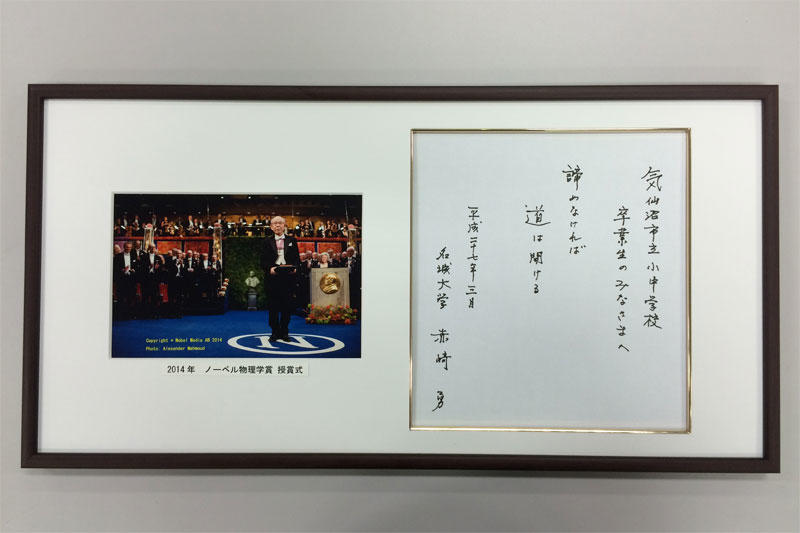 Copyright © Nobel Media AB 2014
Photo: Alexander Mahmoud
N
2014年 ノーベル物理学賞 授賞式
気仙沼市立小中学校
卒業生のみなさまへ
諦めなければ
道は開ける
平成二十七年三月
名城大学 赤﨑 勇